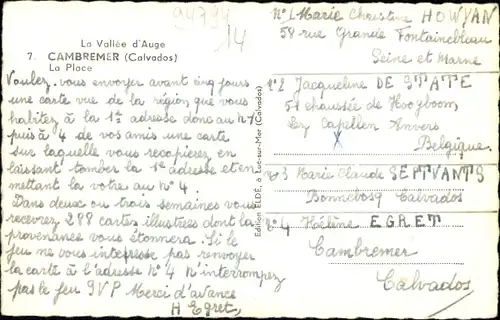 94794
14
La Vallée d'Auge
7. CAMBREMER (Calvados)
La Place
Voulez-vous envoyer avant cinq jours
une carte vue de la région que vous
habitez à la 1re adresse donc au n°1
puis à 4 de vos amis une carte
sur laquelle vous recopierez en
laissant tomber la 1re adresse et en
mettant la votre au n° 4.
Dans deux ou trois semaines vous
recevrez 288 cartes illustrées dont la
provenance vous étonnera. Si le
jeu ne vous intéresse pas renvoyer
la carte à l'adresse n° 4 N interrompez
pas le jeu SVP Merci d'avance
H Egret,
Edition ELDÉ, à Luc-sur-Mer (Calvados)
n° 1 Marie Christine HOWYAN
58 rue Grande Fontainebleau
Seine et Marne
n°2 Jacqueline DE STATE
51 chaussée de Hoogboom
Capellen Anvers
Belgique
n°3 Marie Claude SEPTVANTS
Bonnebosq Calvados
n° 4 Hélène EGRET
Cambremer
Calvados